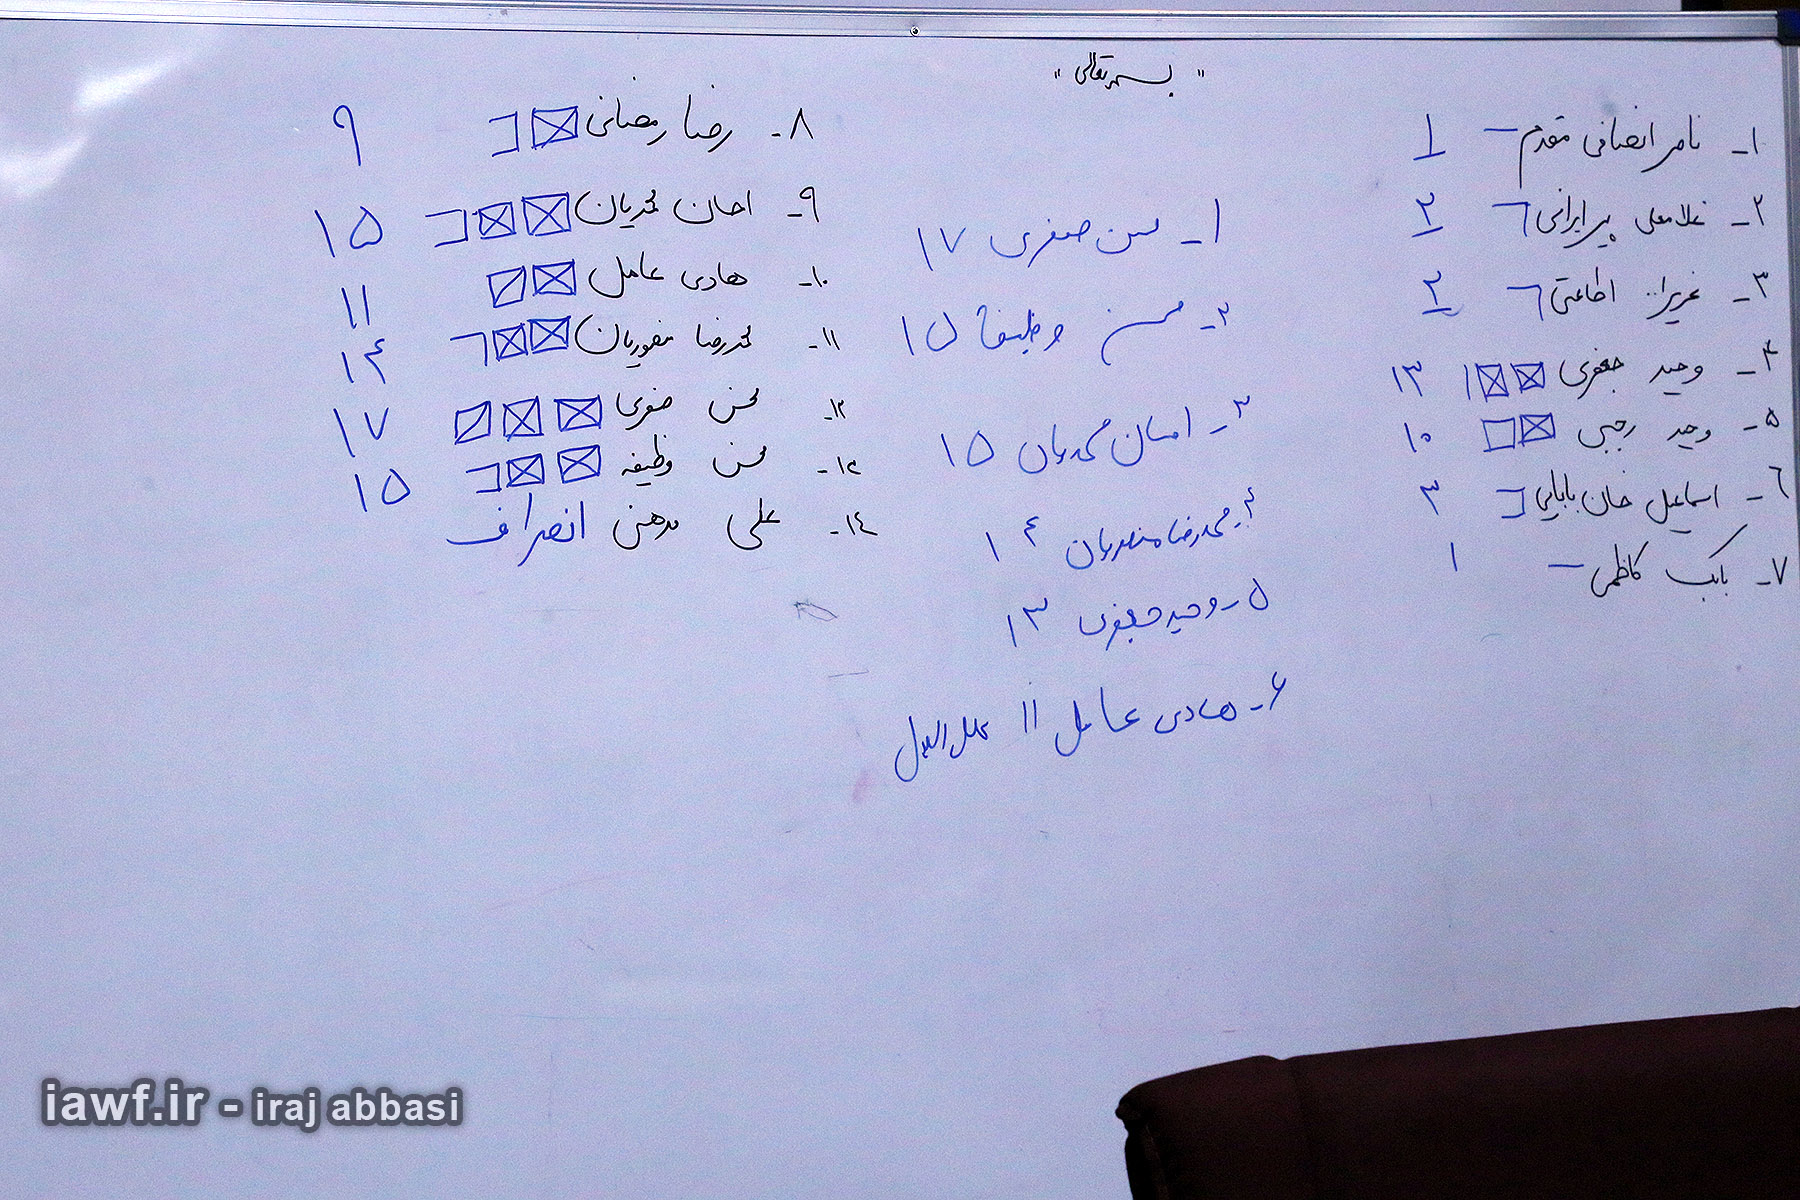 "بسمه تعالی"
۱- ناصر انصافی مقدم ۱
۲- غلامعلی پیرایرانی ۲
۳- عزیزا.. اطاعتی ۲
۴- وحید جعفری ۱۳
۵- وحید رجبی ۱۰
۶- اسماعیل خان بابایی ۳
۷- بابک کاظمی ۱
۱- محسن صفری ۱۷
۲- محسن وظیفه ۱۵
۳- احسان محمدیان ۱۵
۴- محمدرضا منصوریان ۱۴
۵- وحید جعفری ۱۳
۶- هادی عامل ۱۱ علی البدل
۸- رضا رمضانی ۹
۹- احسان محمدیان ۱۵
۱۰- هادی عامل ۱۱
۱۱- محمدرضا منصوریان ۱۴
۱۲- محسن صفری ۱۷
۱۳- محسن وظیفه ۱۵
۱۴- علی انصراف
iawf.ir - iraj abbasi